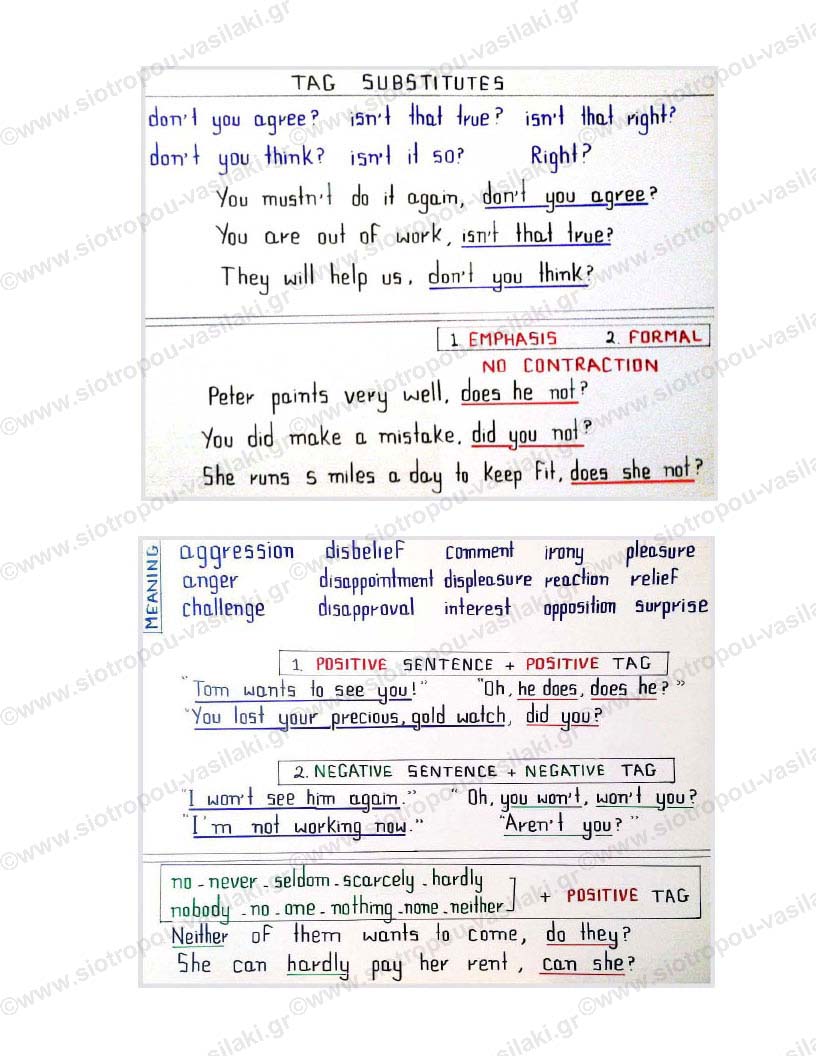 TAG SUBSTITUTES
don't you agree? isn't that true? isn't that right?
don't you think? isn't it so? Right?
You mustn't do it again, don't you agree?
You are out of work, isn't that true?
They will help us, don't you think?
1. EMPHASIS 2. FORMAL
NO CONTRACTION
Peter paints very well, does he not?
You did make a mistake, did you not?
She runs 5 miles a day to keep fit, does she not?
MEANING
aggression disbelief comment irony pleasure
anger disappointment displeasure reaction relief
challenge disapproval interest opposition surprise
1. POSITIVE SENTENCE + POSITIVE TAG
"Tom wants to see you!" "Oh, he does, does he?"
"You lost your precious, gold watch, did you?
2. NEGATIVE SENTENCE + NEGATIVE TAG
"I won't see him again." "Oh, you won't, won't you?
"I'm not working now." "Aren't you?"
no - never - seldom - scarcely - hardly
nobody - no - one - nothing - none - neither + POSITIVE TAG
Neither of them wants to come, do they?
She can hardly pay her rent, can she?
©www.siotropou-vasilaki.gr